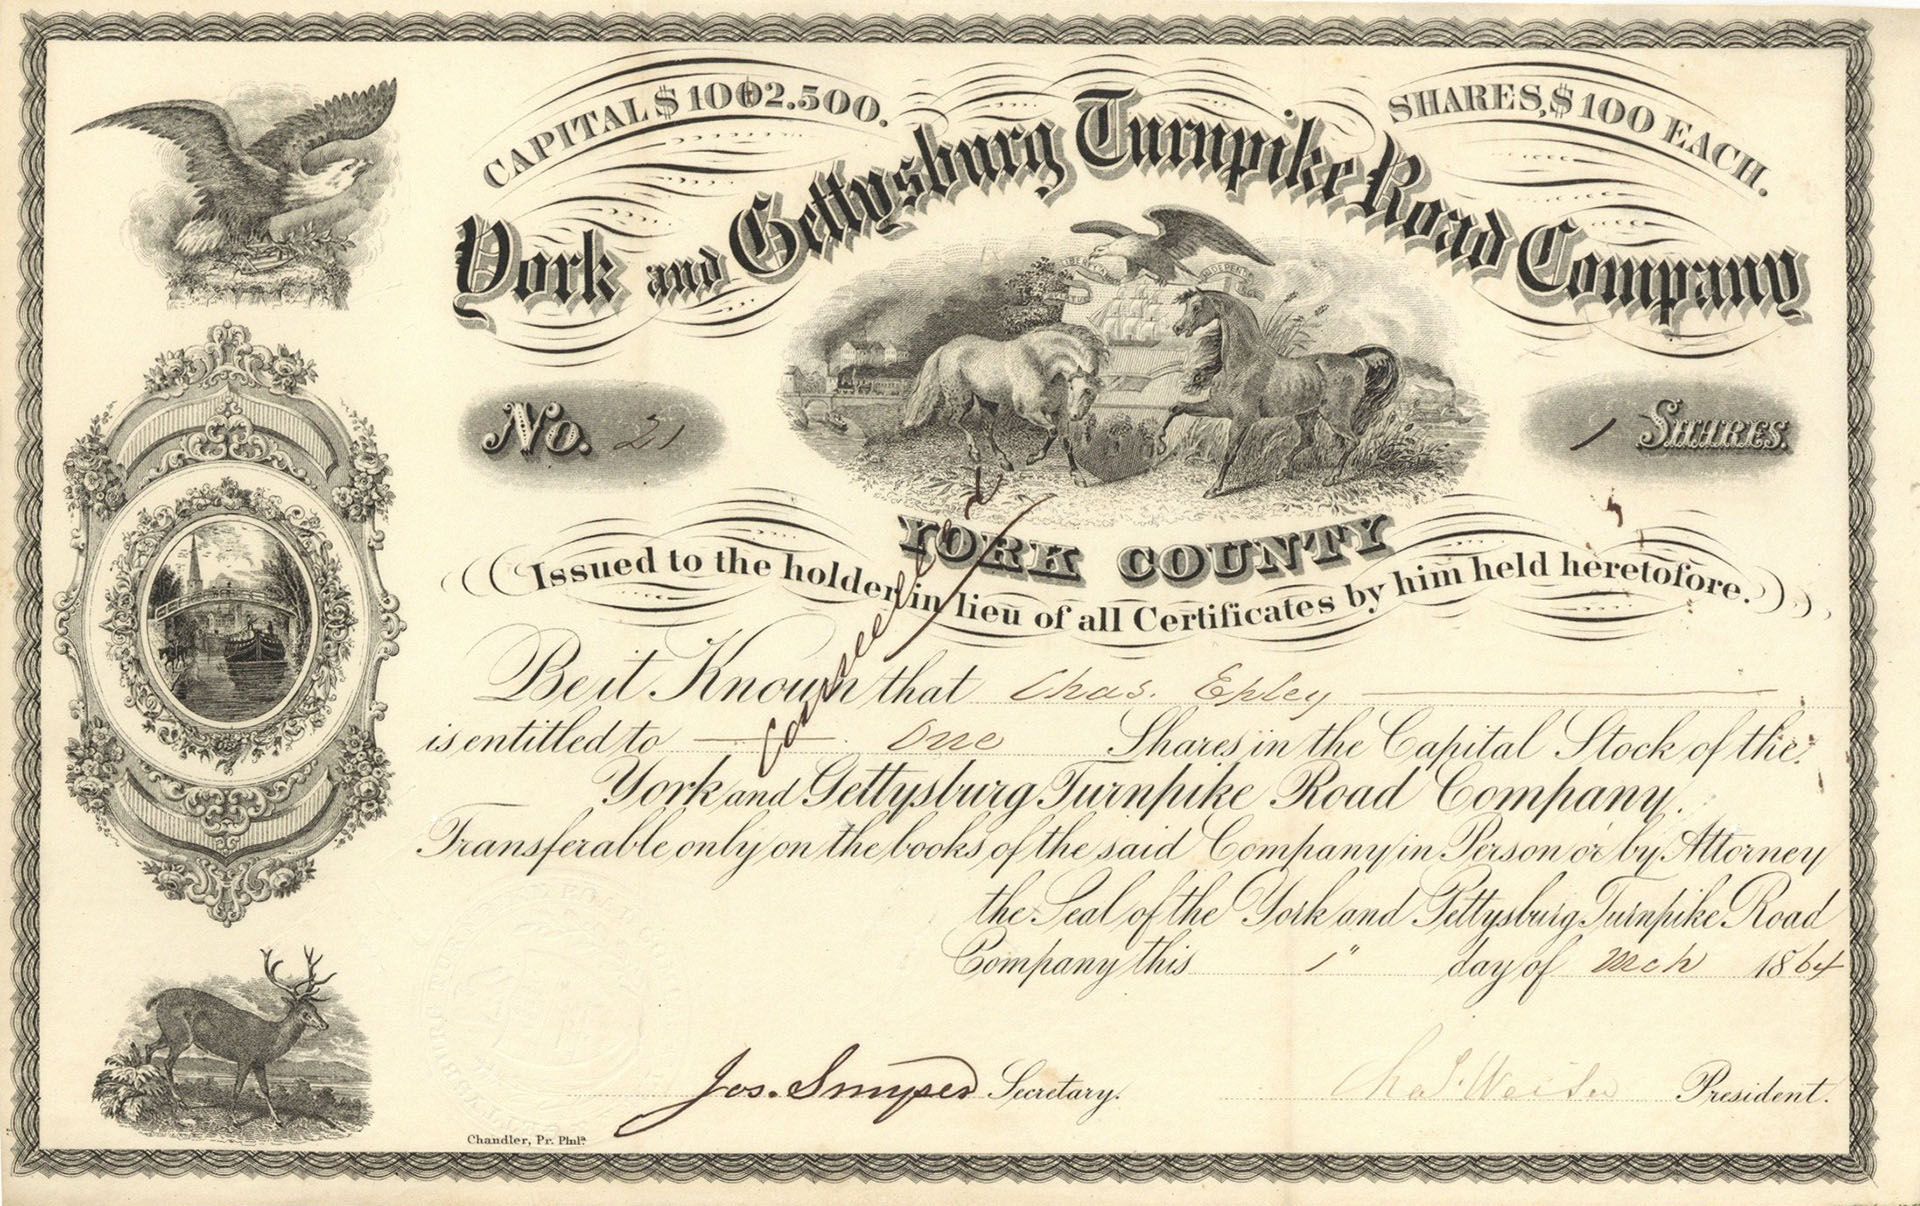 CAPITAL $ 1002.500.
SHARES, $ 100 EACH.
York and Gettysburg Turnpike Road Company
LIBERTY AND
No. 21
1 SHARES.
YORK COUNTY
Issued to the holder in lieu of all Certificates by him held heretofore.
Cancelled
Be it Known that Chas. Epley
is entitled to One Shares in the Capital Stock of the
York and Gettysburg Turnpike Road Company.
Transferable only on the books of the said Company in Person or by Attorney
the Seal of the York and Gettysburg Turnpike Road
Company this 1" day of Mch 1864
Jos. Smyser Secretary.
Chas. Weiser President.
Chandler, Pr. Phila.